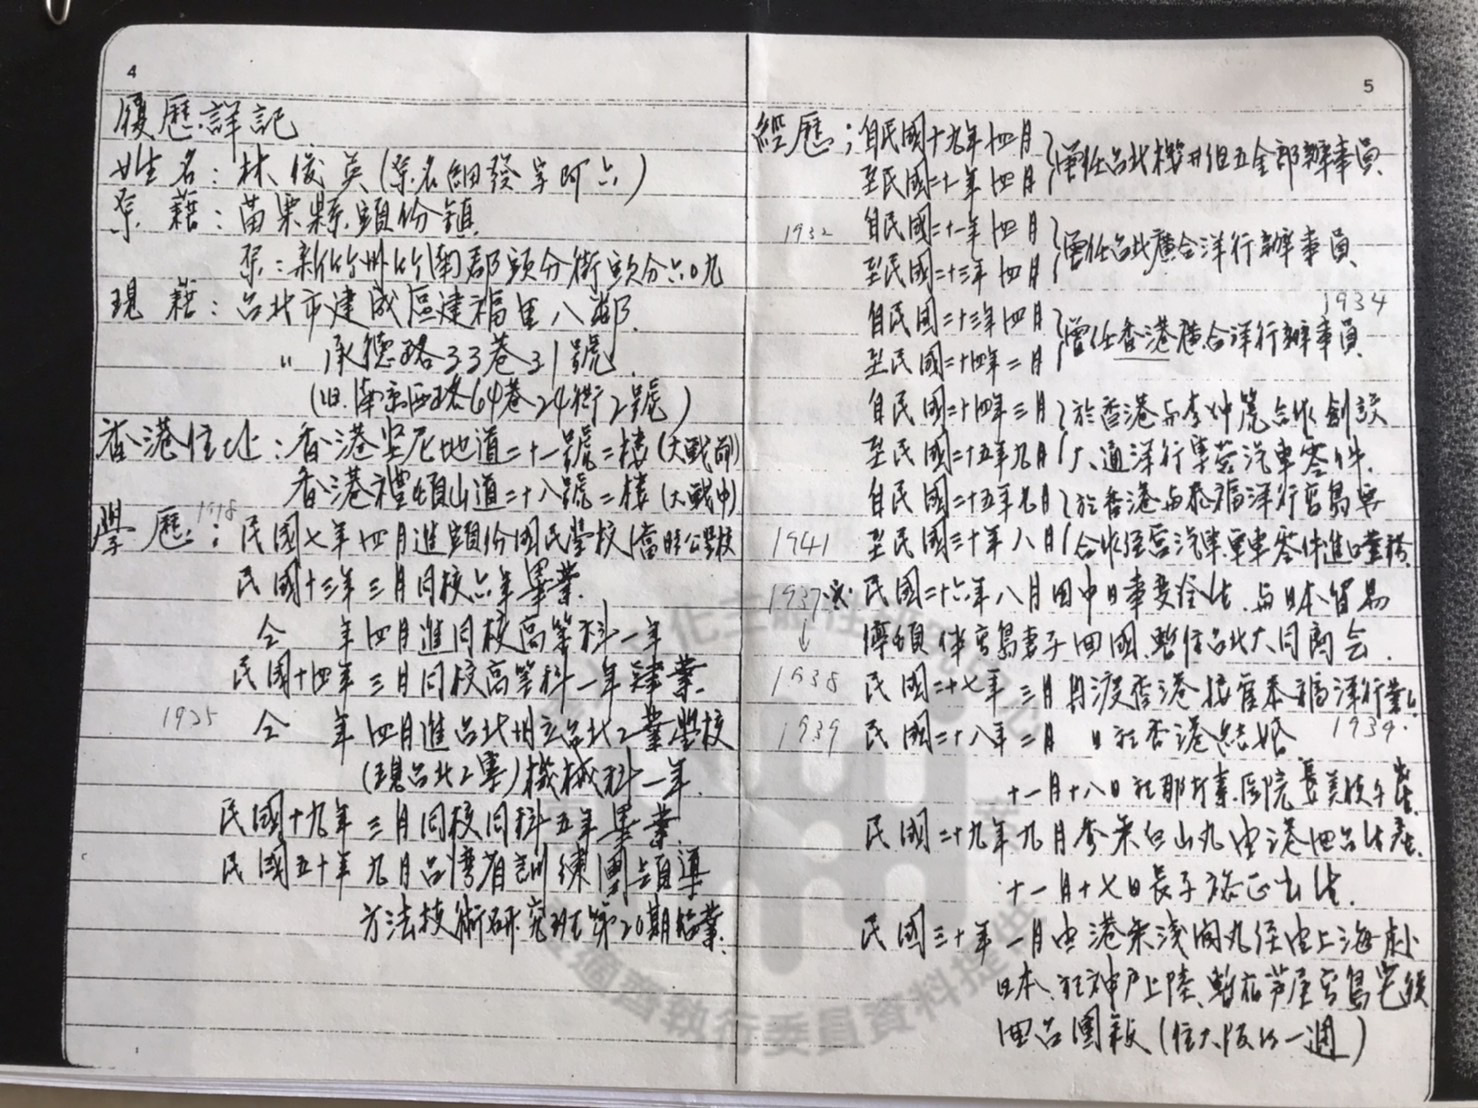 4
履歷詳記
姓名：林俊英(原名細發字阿六)
原籍：苗栗縣頭份鎮
原：新竹州竹南郡頭分街頭分六〇九
現籍：台北市建成區建福里八鄰.
〃 承德路33巷31號.
(旧.南京西路64巷24衖2號)
香港住址：香港堅尼地道二十一號二樓(大戰前)
香港禮頓山道二十八號二樓(大戰中)
學歷： 1918 民國七年四月進頭份國民學校(當時公學校
民國十三年三月同校六年畢業.
仝 年四月進同校高等科一年
民國十四年三月同校高等科一年肄業.
1925 仝 年四月進台北州立台北工業學校
(現台北工專)機械科一年.
民國十九年三月同校同科五年畢業.
民國五十年九月台灣省訓練團領導
方法技術研究班第20期結業.
5
經歷；自民國十九年四月
至民國二十一年四月 }曾任台北 組五金部辦事員
1932 自民國二十一年四月
至民國二十三年四月 }曾任台北廣合洋行辦事員
1934
自民國二十三年四月
至民國二十四年二月 }曾任香港廣合洋行辦事員
自民國二十四年三月 }於香港与李仲 合作創設
至民國二十五年九月 大通洋行專營汽車零件.
自民國二十五年九月 }於香港与泰福洋行宮島
1941 至民國三十年八月 合作經營汽車.單車零件進口業務
1937 ※ 民國二十六年八月因中日事變 .与日本貿易
停頓 伴宮島妻子回國.暫住台北大同商会.
1938 民國二十七年三月再渡香港接管泰福洋行業
1939 民國二十八年二月 日於香港結婚 1939.
十一月十八日於那打素醫院長美 .
民國二十九年九月 乘白山丸由港回台 .
十一月十七日長子 正出生.
民國三十年一月由港乘淺間丸經由上海赴
日本.於神戶上陸.暫在芦屋宮島宅
回台 (住大阪 一週)